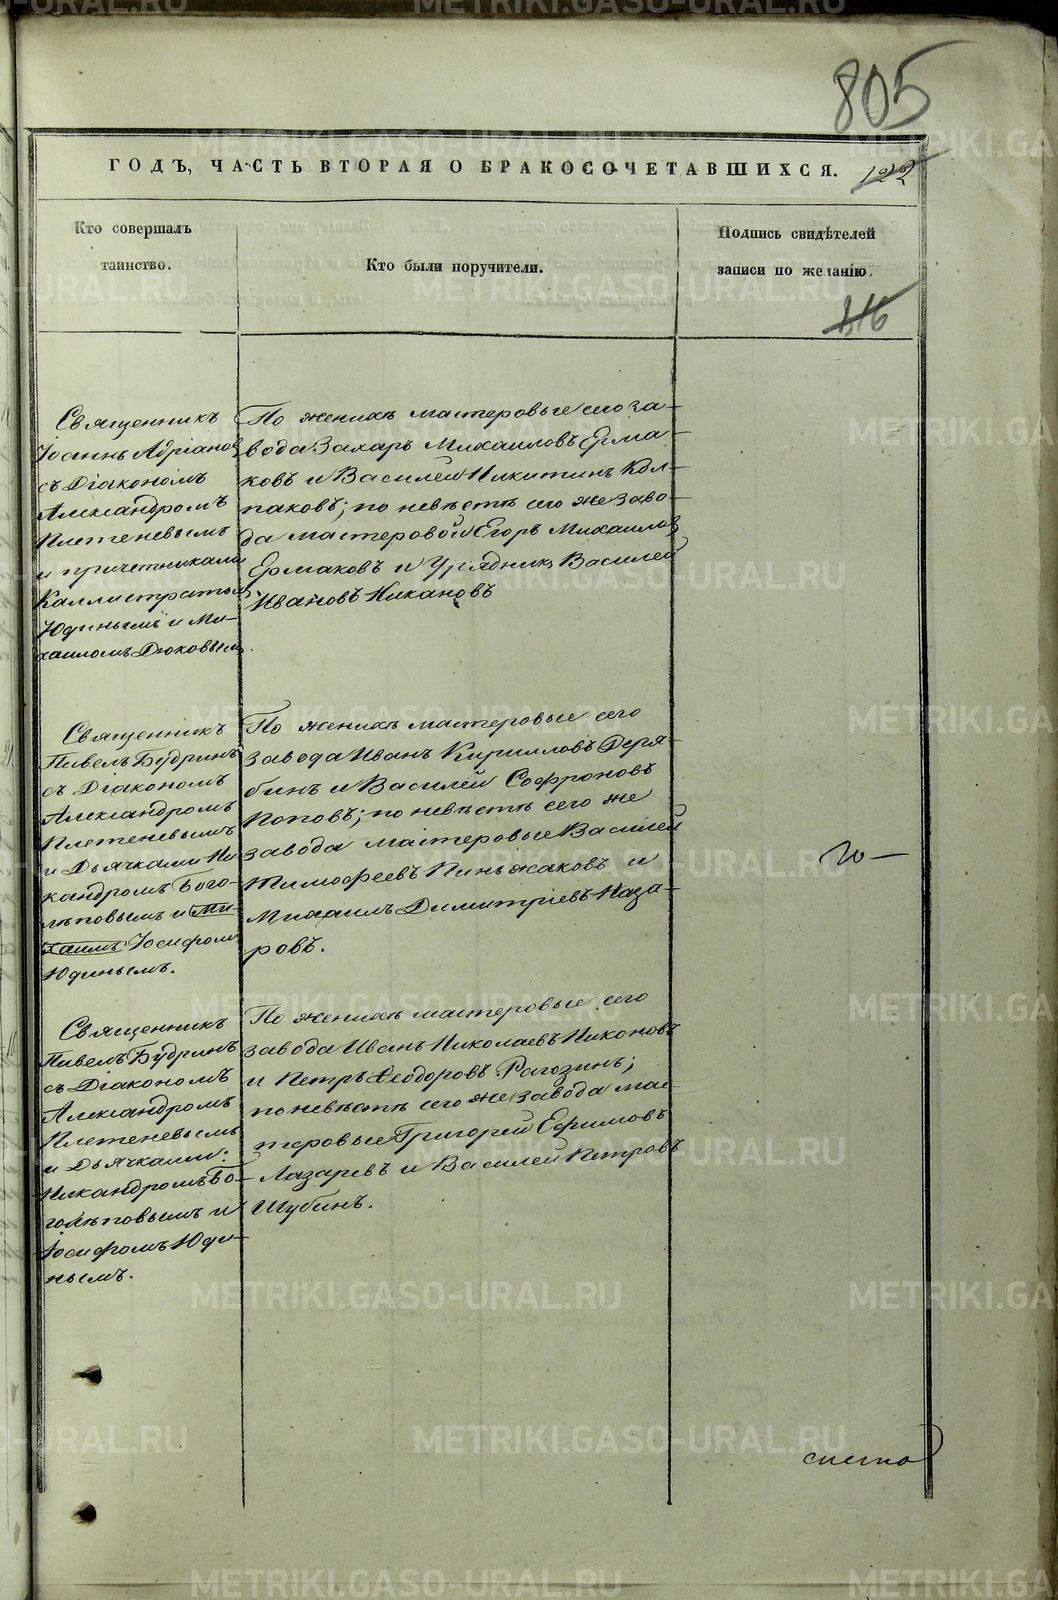 805
ГОДЪ, ЧАСТЬ ВТОРАЯ О БРАКОСОЧЕТАВШИХСЯ.
122
Кто совершалъ
таинство.
Кто были поручители.
Подпись свидѣтелей
записи по желанію.
116
Священникъ
Іоаннъ Адріановъ
съ Діакономъ
Александромъ
Плетеневымъ
и причетниками
Каллистратомъ
Юдинымъ и Ми-
хаиломъ Дюковымъ.
По женихѣ мастеровые сего за-
вода Захаръ Михаиловъ Ерма-
ковъ и Василей Никитинъ Кол-
паковъ; по невѣстѣ сего же заво-
да мастеровой Егоръ Михаиловъ
Ермаковъ и Урядникъ Василей
Ивановъ Никановъ
Священникъ
Павелъ Будринъ
съ Діакономъ
Александромъ
Плетеневымъ
и Дьячками Ни-
кандромъ Бого-
лѣповымъ и Ми-
хаилъ Іосифомъ
Юдинымъ.
По женихѣ мастеровые сего
завода Иванъ Кирилловъ Деря-
бинъ и Василей Софроновъ
Поповъ; по невѣстѣ сего же
завода мастеровые Василей
Тимофеевъ Пинжаковъ и
Михаилъ Димитріевъ Наза-
ровъ.
го-
Священникъ
Павелъ Будринъ
съ Діакономъ
Александромъ
Плетеневымъ
и Дьячками:
Никандромъ Бо-
голѣповымъ и
Іосифомъ Юди-
нымъ.
По женихѣ мастеровые сего
завода Иванъ Николаевъ Никоновъ
и Петръ Ѳеодоровъ Рагозинъ;
по невѣстѣ сего же завода мас-
теровые Григорей Ефимовъ
Лазаревъ и Василей Петровъ
Шубинъ.
METRIKI.GASO-URAL.RU